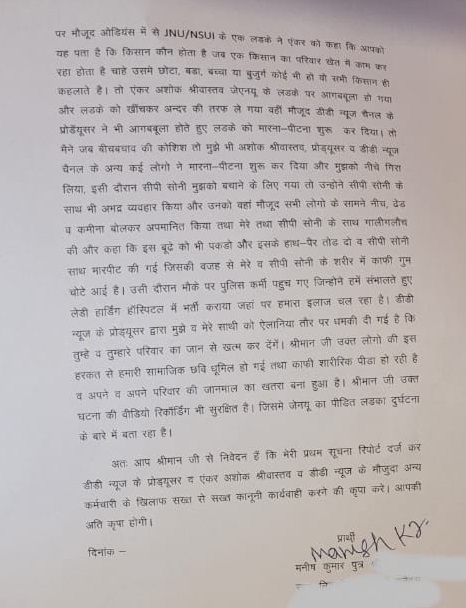 पर मौजूद ओडियंस में से JNU/NSUI के एक लडके ने एंकर को कहा कि आपको
यह पता है कि किसान कौन होता है जब एक किसान का परिवार खेत में काम कर
रहा होता है चाहे उसमे छोटा, बडा, बच्चा या बुजुर्ग कोई भी हो वो सभी किसान ही
कहलाते है। तो एंकर अशोक श्रीवास्तव जेएनयू के लडके पर आगबबूला हो गया
और लडके को खींचकर अन्दर की तरफ ले गया वहीं मौजूद डीडी न्यूज चैनल के
प्रोडेयूसर ने भी आगबबूला होते हुए लडके को मारना–पीटना शुरू कर दिया। तो
मैने जब बीचबचाव की कोशिश तो मुझे भी अशोक श्रीवास्तव, प्रोड्यूसर व डीडी न्यूज
चैनल के अन्य कई लोगो ने मारना–पीटना शुरू कर दिया और मुझको नीचे गिरा
लिया, इसी दौरान सीपी सोनी मुझको बचाने के लिए गया तो उन्होने सीपी सोनी के
साथ भी अभद्र व्यवहार किया और उनको वहां मौजूद सभी लोगो के सामने नीच, ढेड
व कमीना बोलकर अपमानित किया तथा मेरे तथा सीपी सोनी के साथ गालीगलौच
की और कहा कि इस बूढे को भी पकडो और इसके हाथ–पैर तोड दो व सीपी सोनी
साथ मारपीट की गई जिसकी वजह से मेरे व सीपी सोनी के शरीर में काफी गुम
चोटे आई है। उसी दौरान मौके पर पुलिस कर्मी पहुच गए जिन्होने हमें संभालते हुए
लेडी हार्डिंग हॉस्पिटल में भर्ती कराया जहां पर हमारा इलाज चल रहा है। डीडी
न्यूज के प्रोड्यूसर द्वारा मुझे व मेरे साथी को ऐलानिया तौर पर धमकी दी गई है कि
तुम्हे व तुम्हारे परिवार का जान से खत्म कर देगें। श्रीमान जी उक्त लोगो की इस
हरकत से हमारी सामाजिक छवि धूमिल हो गई तथा काफी शारीरिक पीडा हो रही है
व अपने व अपने परिवार की जानमाल का खतरा बना हुआ है। श्रीमान जी उक्त
घटना की वीडियो रिकॉर्डिंग भी सुरक्षित है। जिसमे जेनयू का पीडित लडका दुर्घटना
के बारे में बता रहा है।
अतः आप श्रीमान जी से निवेदन हैं कि मेरी प्रथम सूचना रिपोर्ट दर्ज कर
डीडी न्यूज के प्रोड्यूसर व एंकर अशोक श्रीवास्तव व डीडी न्यूज के मौजुदा अन्य
कर्मचारी के खिलाफ सख्त से सख्त कानूनी कार्यवाही करने की कृपा करे। आपकी
अति कृपा होगी।
दिनांक –
प्रार्थी
Manish Kr.
मनीष कुमार पुत्र